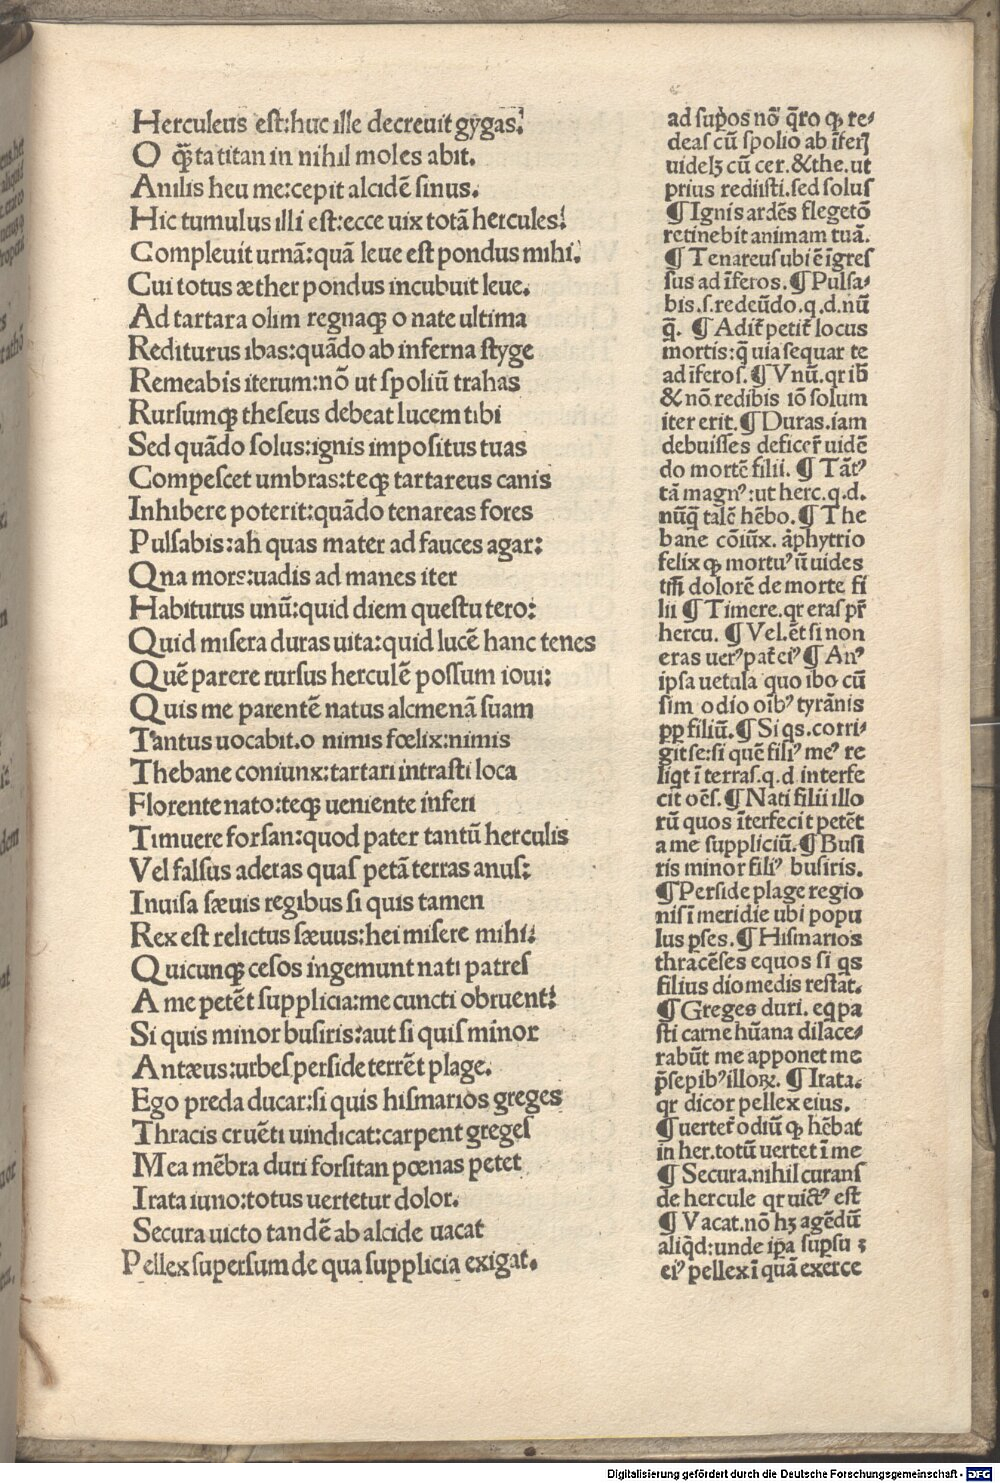 Herculeus est:huc ille decreuit gygas.
O q̄ta titan in nihil moles abit.
Anilis heu me:cepit alcidē sinus.
Hic tumulus illi est:ecce uix totā hercules!
Compleuit urnā:quā leue est pondus mihi.
Cui totus æther pondus incubuit leue.
Ad tartara olim regnaqꝫ o nate ultima
Rediturus ibas:quādo ab inferna styge
Remeabis iterum:nō ut spoliū trahas
Rursumqꝫ theseus debeat lucem tibi
Sed quādo solus:ignis impositus tuas
Compescet umbras:teqꝫ tartareus canis
Inhibere poterit:quādo tenareas fores
Pulsabis:ah quas mater ad fauces agar:
Qna mors:uadis ad manes iter
Habiturus unū:quid diem questu tero:
Quid misera duras uita:quid lucē hanc tenes
Quē parere rursus herculē possum ioui:
Quis me parentē natus alcmenā suam
Tantus uocabit.o nimis fœlix:nimis
Thebane coniunx:tartari intrasti loca
Florente nato:teqꝫ ueniente inferi
Timuere forsan:quod pater tantū herculis
Vel falsus aderas quas petā terras anus:
Inuisa sæuis regibus si quis tamen
Rex est relictus sæuus:hei misere mihi:
Quicunqꝫ cesos ingemunt nati patres
A me petēt supplicia:me cuncti obruent:
Si quis minor busiris:aut si quis minor
Antæus:urbes perside terrēt plage.
Ego preda ducar:si quis hismarios greges
Thracis cruēti uindicat:carpent greges
Mea mēbra duri forsitan pœnas petet
Irata iuno:totus uertetur dolor.
Secura uicto tandē ab alcide uacat
Pellex supersum de qua supplicia exigat.
ad supos nō q̄ro qꝫ re-
deas cū spolio ab īferꝭ
uidelꝫ cū cer.&the.ut
prius rediisti.sed solus
¶Ignis ardēs flegetō
retinebit animam tuā.
¶Tenareus ubi ē īgres
sus ad īferos.¶Pulsa-
bis.s.redeūdo.q.d.nū
q̄. ¶Adit petit locus
mortis:q̄ uia sequar te
ad īferos.¶Vnū.qr ib
&nō.redibis iō solum
iter erit.¶Duras.iam
debuisses deficer uidē
do mortē filii. ¶Tāt⁹
tā magn⁹:ut herc.q.d.
nūq̄ talē hēbo.¶The
bane cōiūx. āphytrio
felix qꝫ mortu⁹ ū uides
tm̄ dolorē de morte fi
lii ¶Timere.qr eras pr̄
hercu. ¶Vel.ēt si non
eras uer⁹ pat ei⁹ ¶An⁹
ipsa uetula quo ibo cū
sim odio oīb⁹ tyrānis
pp filiū.¶Si qs.corri-
git se:si quē fili⁹ me⁹ re
liqt ī terras.q.d interfe
cit oēs.¶Nati filii illo
rū quos īterfecit petēt
a me suppliciū.¶Busi
ris minor fili⁹ busiris.
¶Perside plage regio
nis ī meridie ubi popu
lus pses.¶Hismarios
thracēses equos si qs
filius diomedis restat.
¶Greges duri. eq pa
sti carne hūana dilace-
rabūt me apponet me
p̄sepib⁹ illoꝝ. ¶Irata.
qr dicor pellex eius.
¶uertet odiū qꝫ hēbat
in her.totū uertet ī me
¶Secura.nihil curans
de hercule qr uict⁹ est
¶Vacat.nō hꝫ agēdū
aliqd:unde ipa supsu ꝫ
ei⁹ pellex ī quā exerce
Digitalisierung gefördert durch die Deutsche Forschungsgemeinschaft - DFG